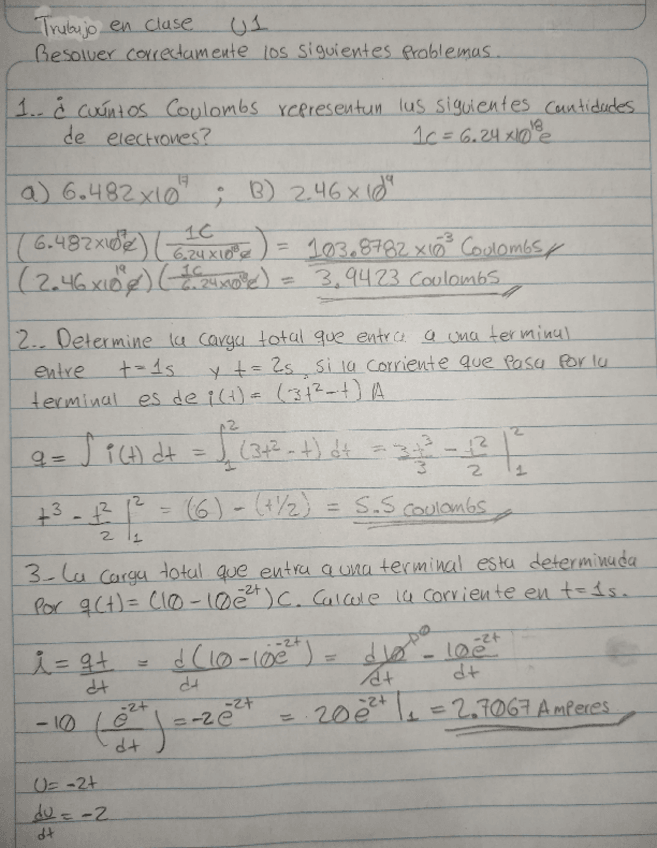 Trabajo en clase U1
Resolver correctamente los siguientes problemas.
1.- ¿ cuántos Coulombs representan las siguientes cantidades
de electrones? 1c = 6.24 x10^18 e
a) 6.482 x10^17 ; B) 2.46 x 10^19
(6.482x10^17 e) (1C / 6.24x10^18 e) = 103.8782 x10^-3 Coulombs
(2.46 x10^19 e) (1C / 6.24x10^18 e) = 3.9423 Coulombs
2.- Determine la carga total que entra a una terminal
entre t=1s y t=2s, si la corriente que pasa por la
terminal es de i(t) = (3t²-t) A
q = ∫ i(t) dt = ∫₁² (3t²-t) dt = 3t³/3 - t²/2 |₁²
t³ - t²/2 |₁² = (6) - (+1/2) = 5.5 coulombs
3- La carga total que entra a una terminal esta determinada
por q(t) = (10-10e^-2t)C. Calcule la corriente en t=1s.
i = qt/dt = d(10-10e^-2t)/dt = d10/dt^0 - 10e^-2t/dt
-10 (e^-2t/dt) = -2e^-2t = 20e^-2t |₁ = 2.7067 Amperes
U = -2t
du/dt = -2